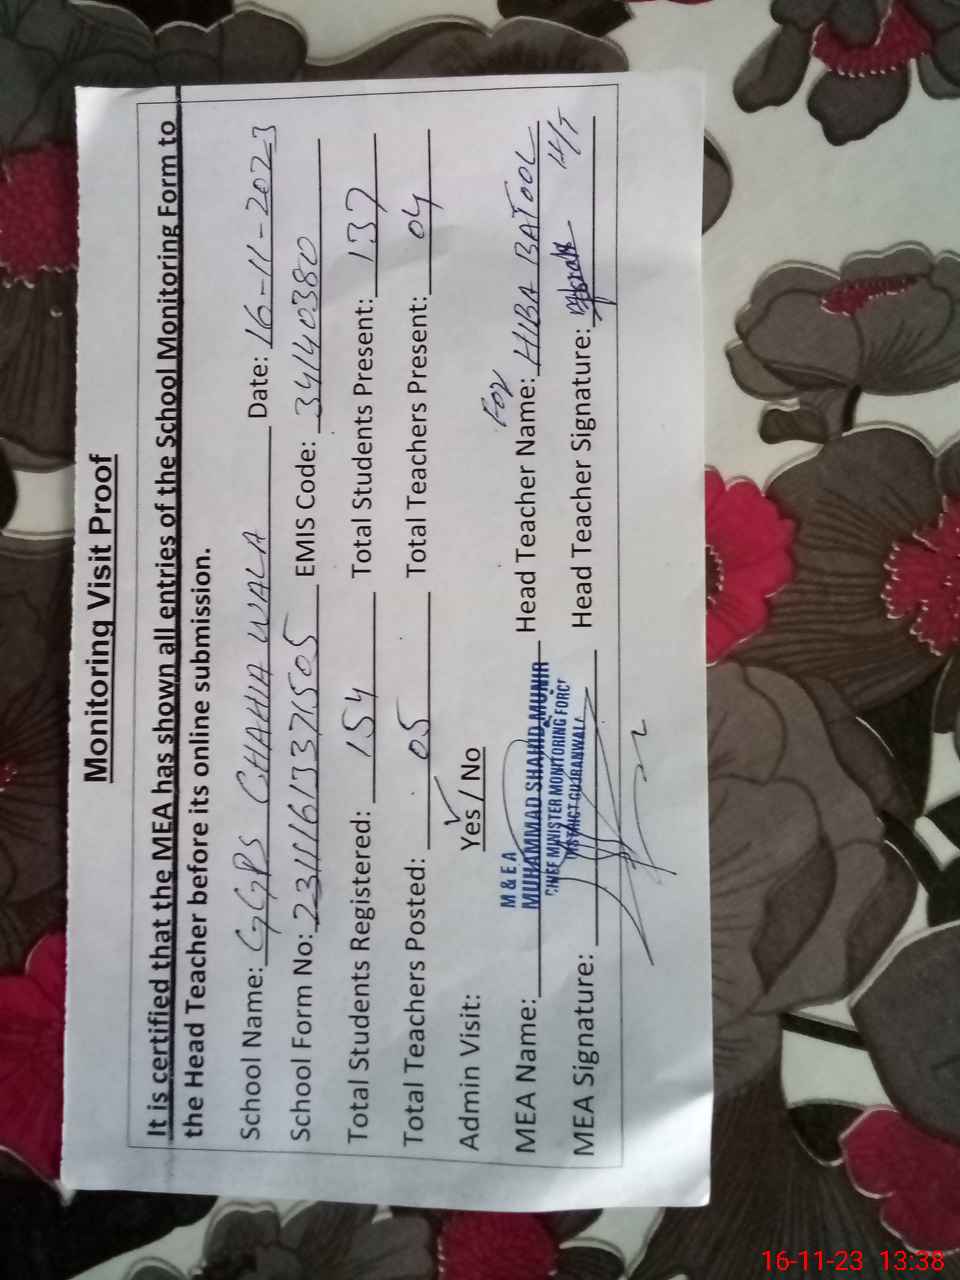 Monitoring Visit Proof
It is certified that the MEA has shown all entries of the School Monitoring Form to
the Head Teacher before its online submission.
School Name: GGPS CHAHIA WALA Date: 16-11-2023
School Form No: 23111613371505 EMIS Code: 34140380
Total Students Registered: 154 Total Students Present: 137
Total Teachers Posted: 05 Total Teachers Present: 04
Admin Visit: Yes / No
M & E A
For
MEA Name: MUHAMMAD SHAHID MUNIR Head Teacher Name: HIBA BATOOL
CHIEF MINISTER MONITORING FORCE
DISTRICT GUJRANWALA
MEA Signature: Head Teacher Signature:
16-11-23 13:38